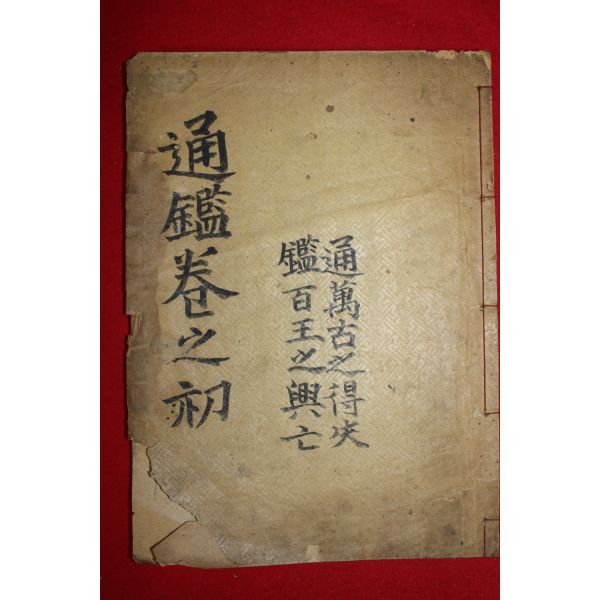 通鑑卷之初
通萬古之得失
鑑百王之興亡